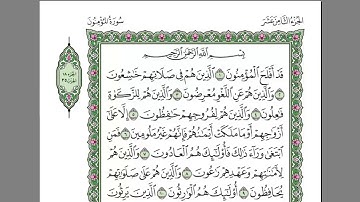 سُورَةُ المُؤْمِنُونَ الجُزْءُ الثَّامِنَ عَشَرَ
بِسْمِ اللَّهِ الرَّحْمَٰنِ الرَّحِيمِ
قَدْ أَفْلَحَ الْمُؤْمِنُونَ ١ الَّذِينَ هُمْ فِي صَلَاتِهِمْ خَاشِعُونَ
٢ وَالَّذِينَ هُمْ عَنِ اللَّغْوِ مُعْرِضُونَ ٣ وَالَّذِينَ هُمْ لِلزَّكَوٰةِ
فَاعِلُونَ ٤ وَالَّذِينَ هُمْ لِفُرُوجِهِمْ حَافِظُونَ ٥ إِلَّا عَلَىٰ
أَزْوَاجِهِمْ أَوْ مَا مَلَكَتْ أَيْمَانُهُمْ فَإِنَّهُمْ غَيْرُ مَلُومِينَ ٦ فَمَنِ
ابْتَغَىٰ وَرَاءَ ذَٰلِكَ فَأُولَٰئِكَ هُمُ الْعَادُونَ ٧ وَالَّذِينَ هُمْ
لِأَمَانَاتِهِمْ وَعَهْدِهِمْ رَاعُونَ ٨ وَالَّذِينَ هُمْ عَلَىٰ صَلَوَاتِهِمْ
يُحَافِظُونَ ٩ أُولَٰئِكَ هُمُ الْوَارِثُونَ ١٠ الَّذِينَ يَرِثُونَ